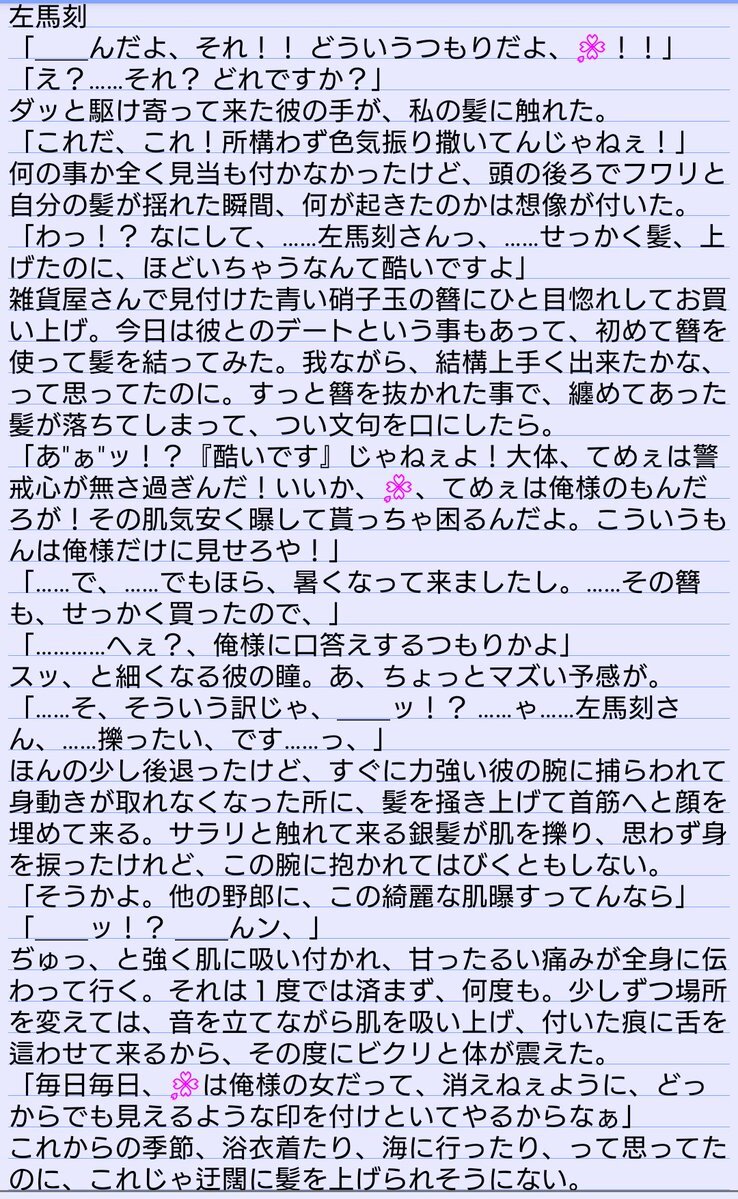 左馬刻
「____んだよ、それ！！ どういうつもりだよ、🍀！！」
「え？……それ？ どれですか？」
ダッと駆け寄って来た彼の手が、私の髪に触れた。
「これだ、これ！所構わず色気振り撒いてんじゃねぇ！」
何の事か全く見当も付かなかったけど、頭の後ろでフワリと
自分の髪が揺れた瞬間、何が起きたのかは想像が付いた。
「わっ！？ なにして、……左馬刻さんっ、……せっかく髪、上
げたのに、ほどいちゃうなんて酷いですよ」
雑貨屋さんで見付けた青い硝子玉の簪にひと目惚れしてお買
い上げ。今日は彼とのデートという事もあって、初めて簪を
使って髪を結ってみた。我ながら、結構上手く出来たかな、
って思ってたのに。すっと簪を抜かれた事で、纏めてあった
髪が落ちてしまって、つい文句を口にしたら。
「あ"ぁ"ッ！？『酷いです』じゃねぇよ！大体、てめぇは警
戒心が無さ過ぎんだ！いいか、🍀、てめぇは俺様のもんだ
ろが！その肌気安く曝して貰っちゃ困るんだよ。こういうも
んは俺様だけに見せろや！」
「……で、……でもほら、暑くなって来ましたし。……その簪
も、せっかく買ったので、」
「…………へぇ？、俺様に口答えするつもりかよ」
スッ、と細くなる彼の瞳。あ、ちょっとマズい予感が。
「……そ、そういう訳じゃ、____ッ！？ ……ゃ……左馬刻さ
ん、……擽ったい、です……っ、」
ほんの少し後退ったけど、すぐに力強い彼の腕に捕らわれて
身動きが取れなくなった所に、髪を掻き上げて首筋へと顔を
埋めて来る。サラリと触れて来る銀髪が肌を擽り、思わず身
を捩ったけれど、この腕に抱かれてはびくともしない。
「そうかよ。他の野郎に、この綺麗な肌曝すってんなら」
「____ッ！？ ____んン、」
ぢゅっ、と強く肌に吸い付かれ、甘ったるい痛みが全身に伝
わって行く。それは１度では済まず、何度も。少しずつ場所
を変えては、音を立てながら肌を吸い上げ、付いた痕に舌を
這わせて来るから、その度にビクリと体が震えた。
「毎日毎日、🍀は俺様の女だって、消えねぇように、どっ
からでも見えるような印を付けといてやるからなぁ」
これからの季節、浴衣着たり、海に行ったり、って思ってた
のに、これじゃ迂闊に髪を上げられそうにない。